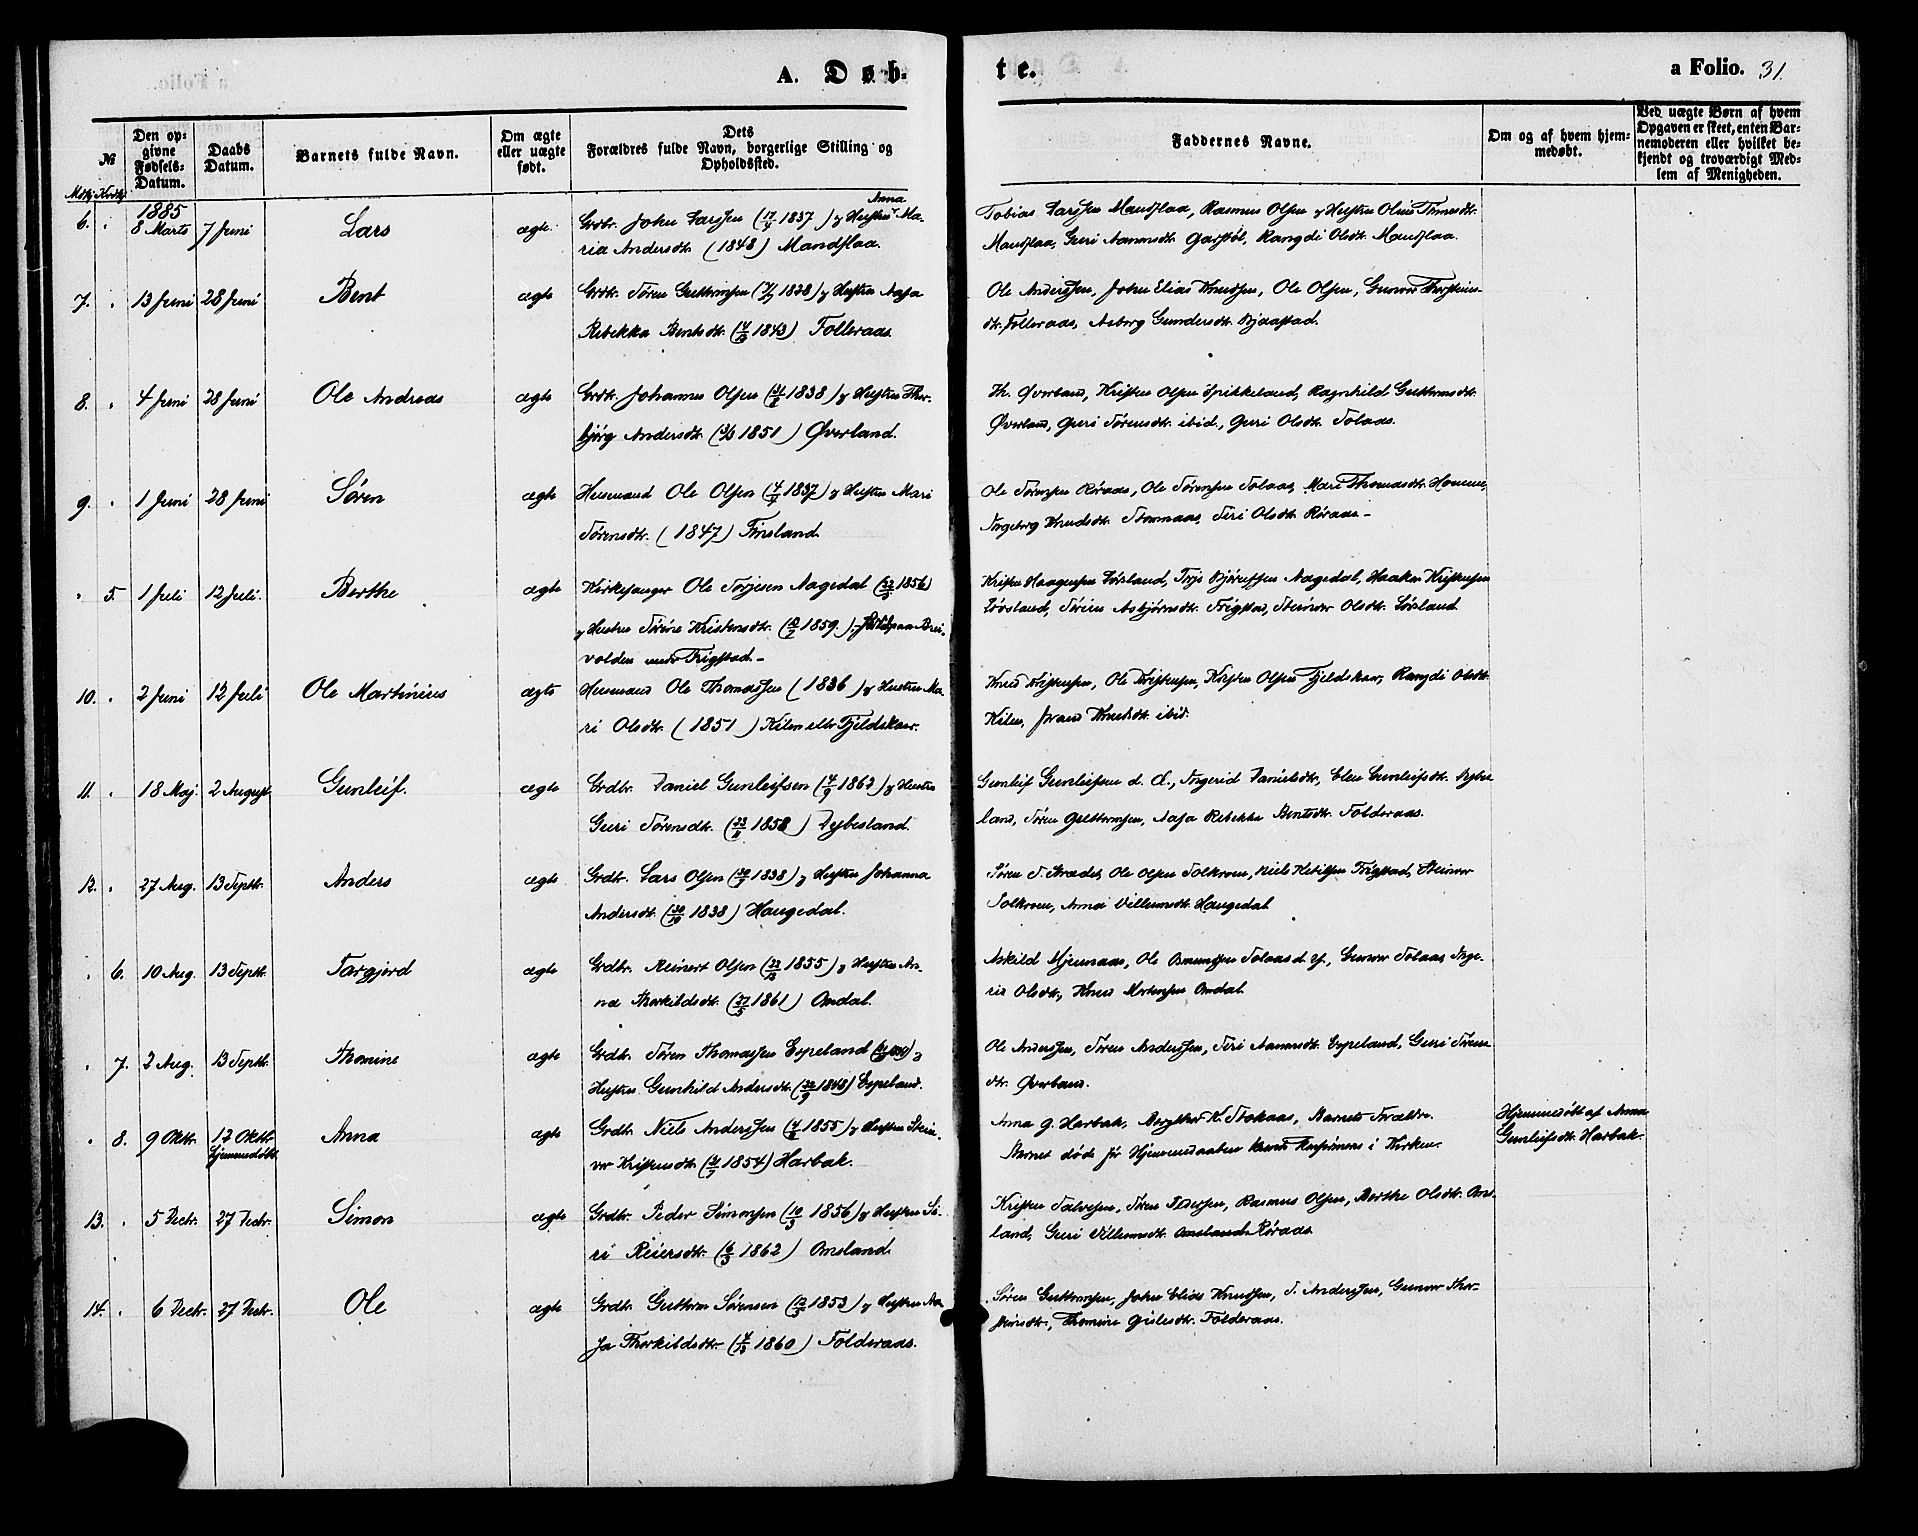 A. Døb-
te.
a Folio. 31.
№
Mdkj. Kvdkj.
Den op-
givne
Fødsels-
Datum.
Daabs
Datum.
Barnets fulde Navn.
Om ægte
eller uægte
født.
Dets
Forældres fulde Navn, borgerlige Stilling og
Opholdssted.
Faddernes Navne.
Om og af hvem hjem-
medøbt.
Ved uægte Børn af hvem
Opgaven er skeet, enten Bar-
nemoderen eller hvilket be-
kjendt og troværdigt Med-
lem af Menigheden.
1885
6. 8 Marts 7 Juni Lars ægte Grdbr. John Larssen (17/4 1837) og Hustru Anna Ma-
ria Andersdtr. (1848) Mandflaa.
Tobias Larssen Mandflaa, Rasmus Olsen og Hustru
Mandflaa, Guri Aanensdtr. Garstøl, Rangdi Olsdtr. Mandflaa.
7. 13 Juni 28 Juni Bent ægte Grdbr. Søren Guttormsen 1838) og Hustru Aasa
Rebekka Bentsdtr. 1843) Folleraas.
Ole Anderssen, John Elias Knudsen, Ole Olsen, Gunvor Thorsteins-
dtr. Folleraas, Asborg Gundersdtr. Bjaastad.
8. 4 Juni 28 Juni Ole Andreas ægte Grdbr. Johannes Olsen 1838) og Hustru Thor-
bjørg Andersdtr. 1851) Øverland.
Th. Øverland, Kristen Olsen Spikkeland, Ragnhild Guttormsdtr.
Øverland, Guri Sørensdtr. ibid., Guri Olsdtr. Solaas.
9. 1 Juni 28 Juni Søren ægte Husmand Ole Olsen 1837) og Hustru Mari
Sørensdtr. (1847) Finsland.
Ole Sørensen Røraas, Ole Sørensen Solaas, Mari Thomasdtr. Homme,
Ingeborg Knudsdtr. Siri Olsdtr. Røraas.-
5. 1 Juli 12 Juli. Berthe ægte Kirkesanger Ole Torjesen Aagedal 1856)
og Hustru Sørine Kristensdtr. 1859.)
volden under Frigstad.-
Kristen Haagensen Løvsland, Terje Bjørufsen Aagedal, Haaken Kristensen
Løvsland, Sørine Asbjørnsdtr. Frigstad, Steinvor Olsdtr. Løvsland
10. 2 Juni 12 Juli Ole Martinius ægte Husmand Ole Thomassen (1836) og Hustru Ma-
ri Olsdtr. (1851) Kilen eller Fjeldskaar.
Knud Kristensen, Ole Kristensen, Kristen Olsen Fjeldskaar, Rangdi Olsdtr.
Kilen, Knudsdtr. ibid.
11. 18 Maj 2 August Gunleif. ægte Grdbr. Daniel Gunleifsen (4/9 1863) og Hustru
Guri Sørensdtr. 1858) Dybesland.
Gunleif Gunleifssen d. Æ., Ingerid Danielsdtr., Elen Gunleifsdtr. Dybes-
land, Søren Guttormsen, Aasa Rebekka Bentsdtr. Folderaas.
12. 27 Aug. 13 Septbr. Anders ægte Grdbr. Lars Olsen 1838) og Hustru Johanna
Andersdtr. (30/10 1838) Haugedal.
Søren S. Strædet, Ole Olsen Solkroen, Niels Ketilsen Frigstad, Steinvor
Solkroen, Anna Villumsdtr. Haugedal.
6. 10 Aug. 13 Septbr. Targjerd ægte Grdbr. Reinert Olsen 1855) og Hustru An-
na Thorkildsdtr. (27/5 1861) Omdal.
Askild Hjemaas, Ole Osmundsen Solaas d. Y., Gunvor Solaas, Inge-
rid Olsdtr., Knud Mortensen Omdal.
7. 2 Aug. 13 Septbr. Thomine ægte Grdbr. Søren Thomassen Espeland og
Hustru Gunhild Andersdtr. 1848) Espeland.
Ole Anderssen, Søren Anderssen, Siri Aanensdtr. Espeland, Guri Sørens-
dtr. Øverland.
8. 9 Oktr. 12 Oktbr. hjemmedøbt Anna ægte Grdbr. Niels Anderssen 1855) og Hustru Stein-
vor Kristensdtr. 1854) Harbak.
Anna G. Harbak, K. Stokaas, Barnets Forældre.
Barnet døde før Hjemmedaaben kunde konfirmeres i Kirken.
Hjemmedøbt af Anna
Gunleifsdtr. Harbak.
13. 5 Decbr. 27 Decbr. Simon ægte Grdbr. Peder Simonsen (10/5 1856) og Hustru Si-
ri Reiersdtr. (6/5 1862) Omsland.
Kristen Salvesen, Søren Pedersen, Rasmus Olsen, Berthe Olsdtr. Oms-
land, Guri Villumsdtr. Omsland Røraas.
14. 6 Decbr. 27 Decbr. Ole ægte Grdbr. Guttorm Sørensen 1853) og Hustru Aa-
sa Thorkildsdtr. 1860) Folderaas.
Søren Guttormsen, John Elias Knudsen, S. Anderssen, Gunvor Thor-
steinsdtr., Thomine Gislesdtr. Folderaas.